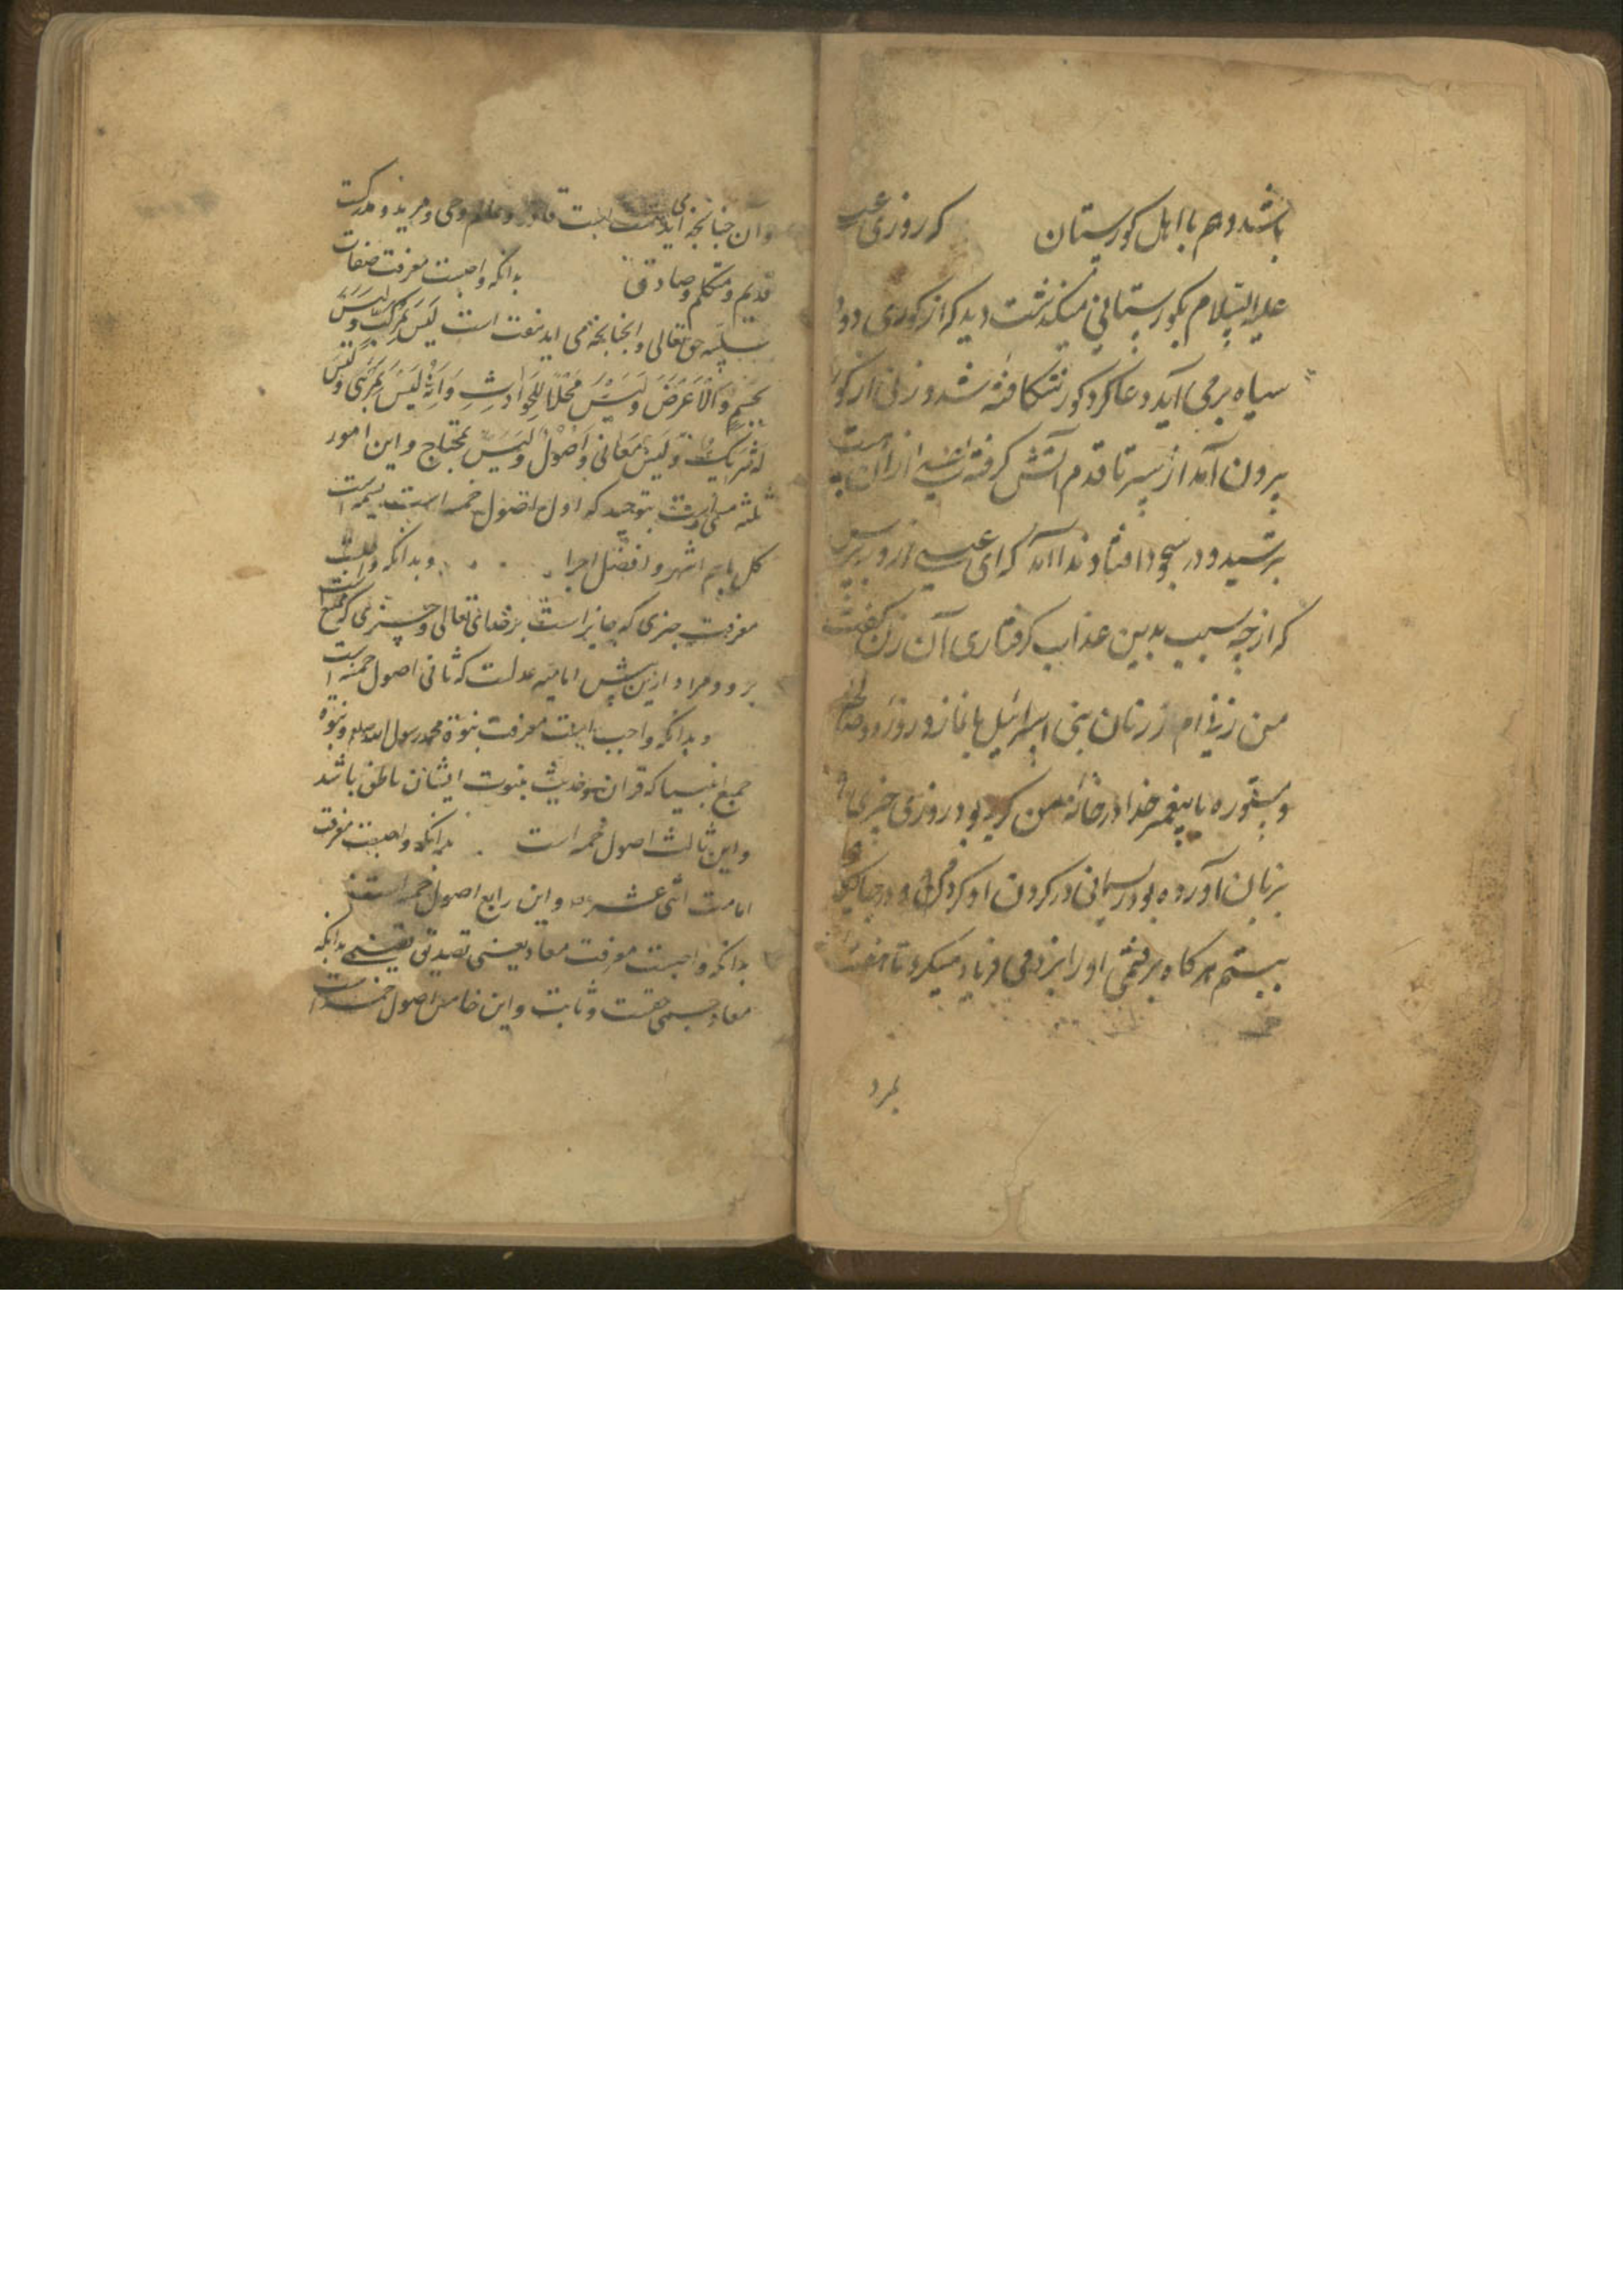 باشد دهم با اهل کورستان که روزی عیسی
علیه السلام بکورستانی میگذشت دید که از کوری دود
سیاه برمی آید دعا کرد کور شکافته شد و زنی از کور
برون آمد از سر تا قدم آتش کرفته عیسی از ان
بترسید و در سجود افتاد ندا آمد که ای عیسی ازو بپرس
که از چه سبب بدین عذاب کرفتاری آن زن کفت
من زنی ام از زنان بنی اسرائیل با نماز و روزه و صالحه
و مستوره با پیغمبر خدا در خانه من کربه بود روزی چیزی
بزبان آورده بود ریسمانی در کردن او کردم و در جایکه
ببستم هر کاه برفتمی اورا بزدمی فریاد میکرد تا هفت
بمرد
وان چنانچه می اید هشت است قادر و عالم و حی و مرید و مدرکست
قدیم و متکلم و صادق بدانکه واجبست معرفت صفات
سلبیه حق تعالی و انچنانچه می اید هفت است لَیسَ بمرکبٍ وَ لَیسَ
بجسمٍ وَالاَعَرَضَ وَلَیسَ مَحَلاّ لِلحَوادِثِ وَاَنَّهُ لَیسَ بمَرئی وَ لَیسَ
لَه شریک وَ لَیسَ مَعانی وَاَصُول وَلَیسَ بمحتاج و این امور
ثلثه مسمی است بتوحید که اول اصول خمسه است تسمیه
کل باسم اشهر و افضل اجزا و بدانکه واجبست
معرفت چیزی که جایز است بر خدای تعالی و چیزی که ممتنع است
برو و مراد ازین پیش امامیه عدلست که ثانی اصول خمسه است
و بدانکه واجب است معرفت بنبوة محمد رسول الله صلعم و نبوة
جمیع انبیا که قران و حدیث بنبوت ایشان ناطق باشد
و این ثالث اصول خمسه است بدانکه واجبست معرفت
امامت اثنی عشر و این رابع اصول خمسه است
بدانکه واجبست معرفت معاد یعنی تصدیق یقینی بدانکه
معاد جسمی حقست و ثابت و این خامس اصول خمسه است